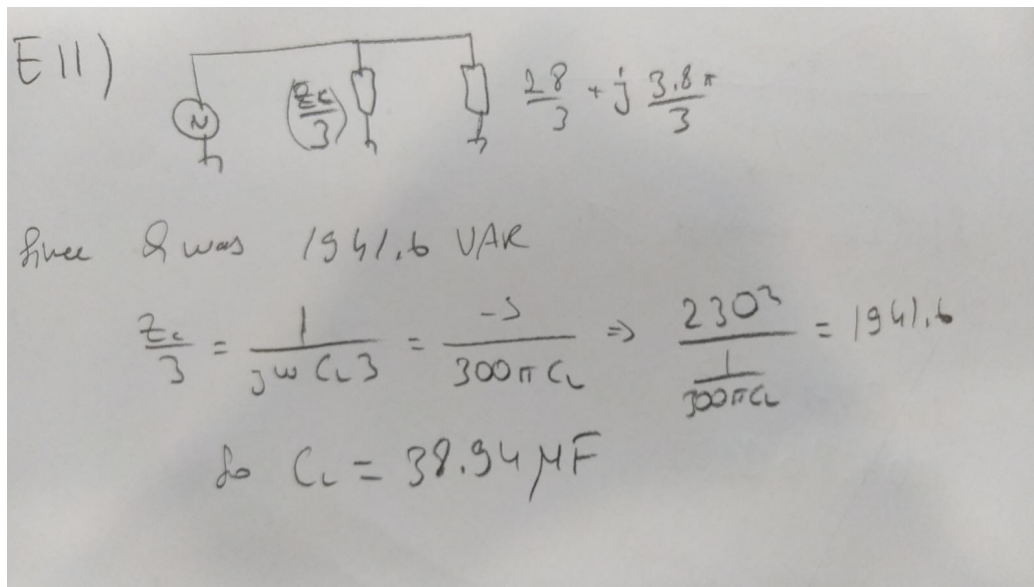 E11)
(Zc/3) 28/3 + j 3.8π/3
Since Q was 1941.6 VAR
Zc/3 = 1/(jω CL 3) = -j/(300π CL) ⇒ 230²/(1/(300π CL)) = 1941.6
So CL = 38.94 μF